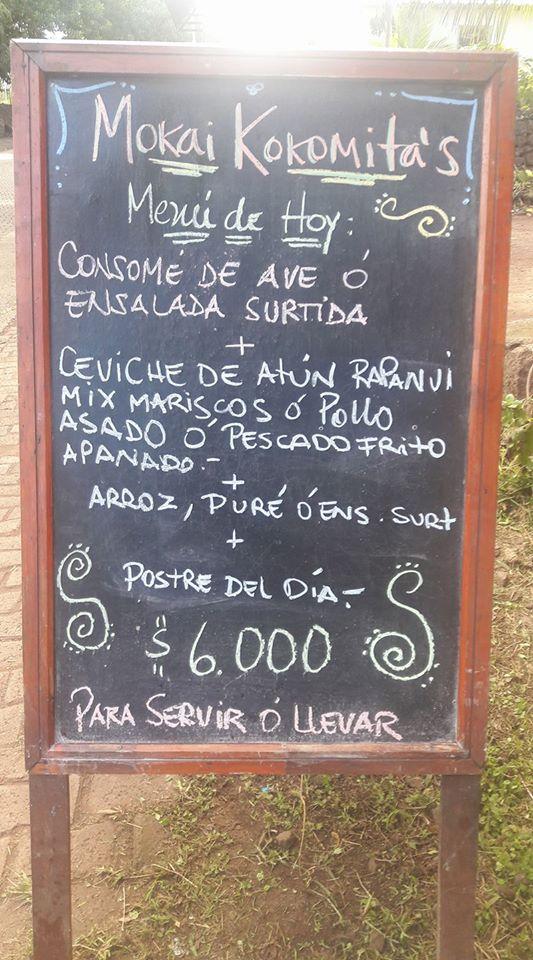 MOKAI KOKOMITA'S
Menú de Hoy:
CONSOMÉ DE AVE Ó
ENSALADA SURTIDA
+
CEVICHE DE ATÚN RAPANUI
MIX MARISCOS Ó POLLO
ASADO Ó PESCADO FRITO
APANADO.-
+
ARROZ, PURÉ Ó ENS. SURT
+
POSTRE DEL DÍA.-
$ 6.000
PARA SERVIR Ó LLEVAR